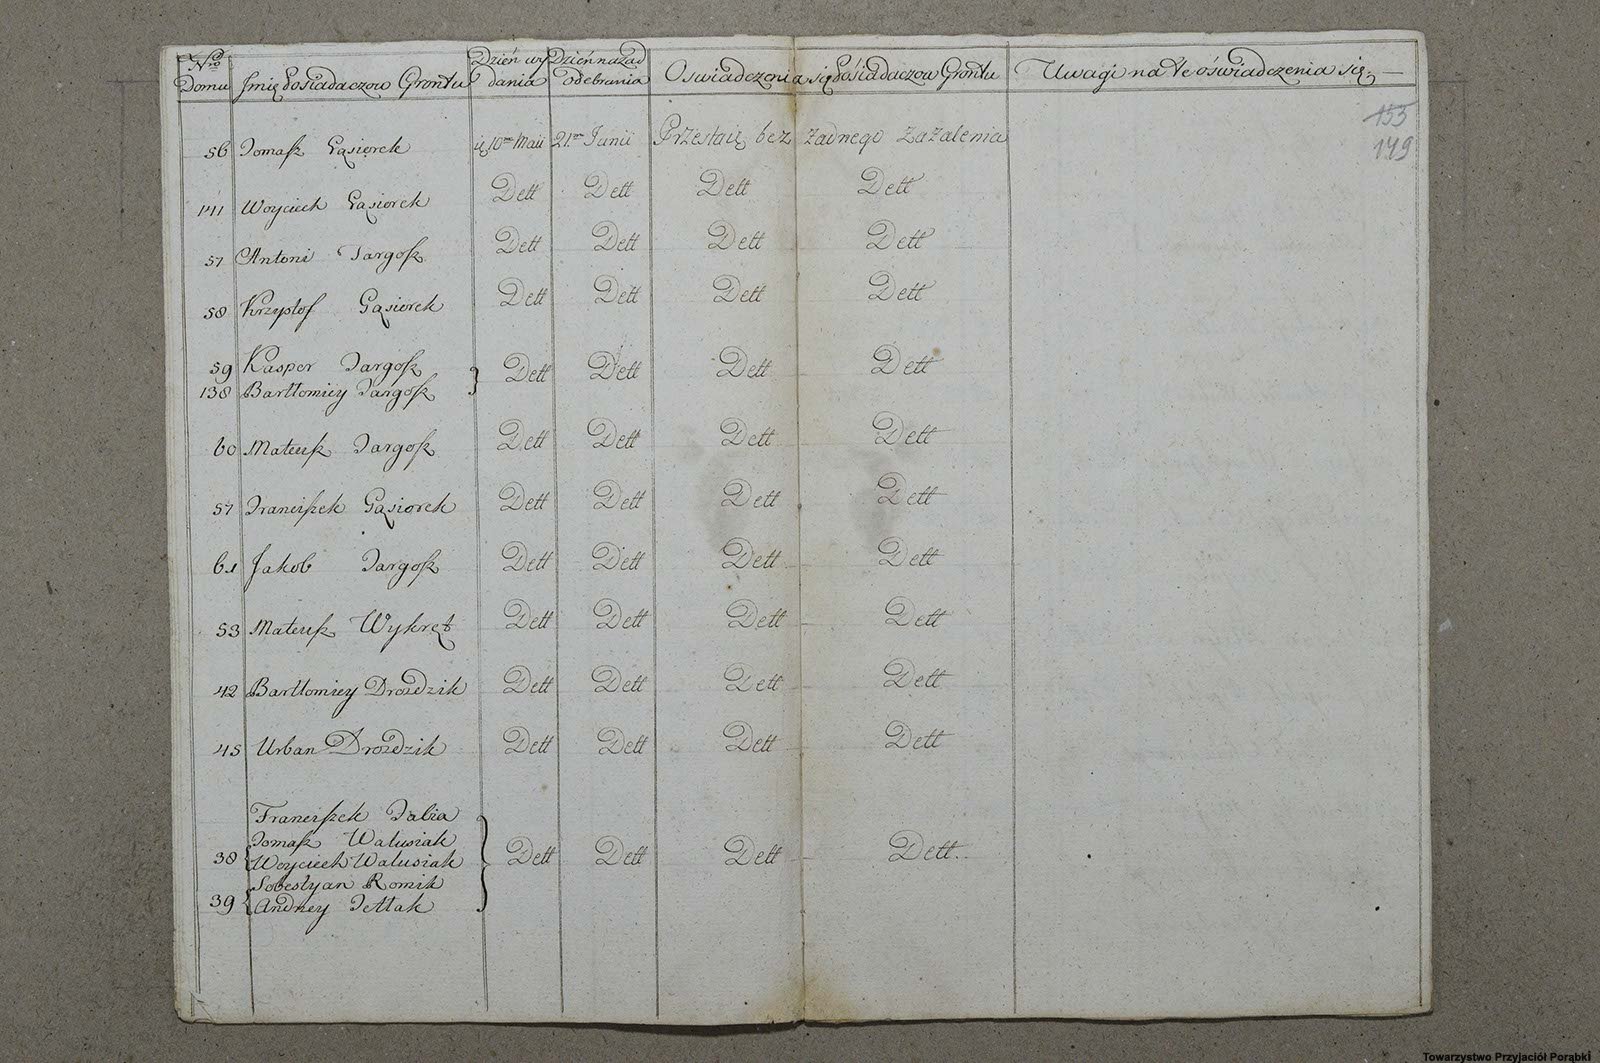 Nro Domu | Jmię Posiadaczow Grontu | Dzień wy dania | Dzień nazad odebrania | Oswiadczenia się Posiadaczow Grontu | Uwagi na te oświadczenia się
155
149
56 Tomaſz Gąsiorek 10ma Maii 21ma Junii Przestaię bez żadnego Zażalenia
Woyciech Gąsiorek Dett Dett Dett Dett
57 Antoni Targoſz Dett Dett Dett Dett
58 Krzysztof Gąsiorek Dett Dett Dett Dett
59 Kasper Targoſz
138 Bartłomiey Targoſz } Dett Dett Dett Dett
60 Mateuſz Targoſz Dett Dett Dett Dett
57 Franciſzek Gąsiorek Dett Dett Dett Dett
61 Jakob Targoſz Dett Dett Dett Dett
53 Mateuſz Wykręt Dett Dett Dett Dett
42 Bartłomiey Drożdzik Dett Dett Dett Dett
45 Urban Drożdzik Dett Dett Dett Dett
Franciſzek
Tomaſz Walusiak
38 Woyciech Walusiak } Dett Dett Dett Dett
Sobestyan Romik
39 Andrzey Tetlak
Towarzystwo Przyjaciół Porąbki